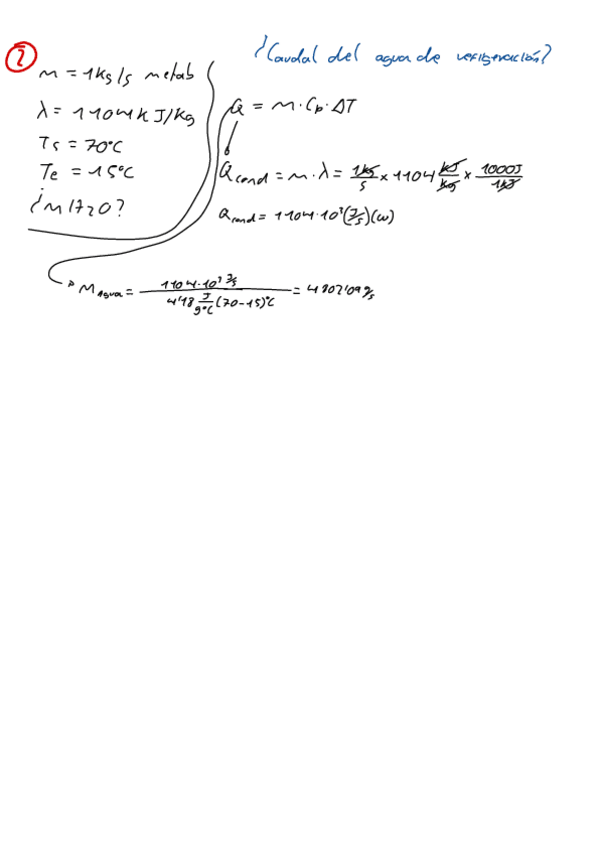 2
¿Caudal del agua de refrigeración?
m = 1 kg/s metab
λ = 1104 kJ/kg
Ts = 70°C
Te = 15°C
¿m H2O?
Q = m · Cp · ΔT
Qcond = m · λ = 1kg/s × 1104 kJ/kg × 1000J/1kJ
Qcond = 1104·10³ (J/s) (W)
Magua = 1104·10³ J/s / 4'18 J/g°C (70-15)°C = 4802'09 g/s